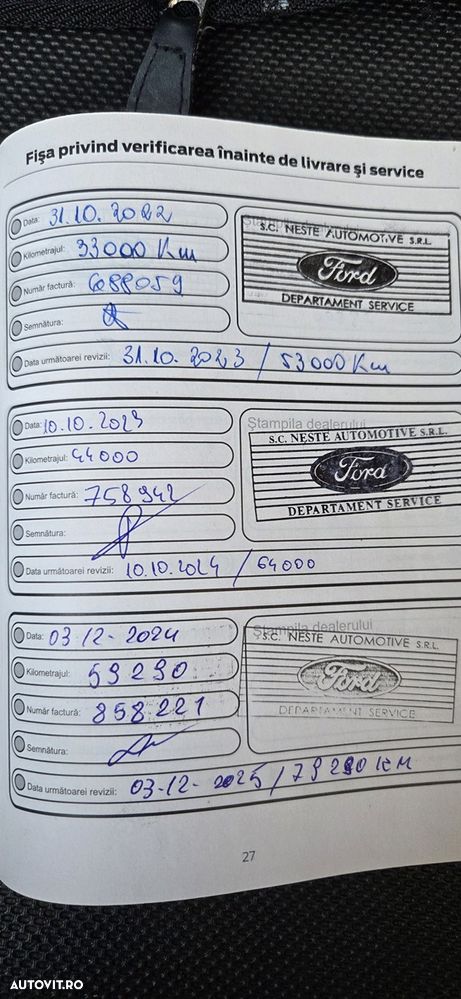 Fișa privind verificarea înainte de livrare și service
Data: 31.10.2022
Kilometrajul: 33000 Km
Număr factură: 6088059
Semnătura:
S.C. NESTE AUTOMOTIVE S.R.L.
Ford
DEPARTAMENT SERVICE
Data următoarei revizii: 31.10.2023 / 53000 Km
Data: 10.10.2023
Kilometrajul: 44000
Număr factură: 758942
Semnătura:
Ștampila dealerului
S.C. NESTE AUTOMOTIVE S.R.L.
Ford
DEPARTAMENT SERVICE
Data următoarei revizii: 10.10.2024 / 64000
Data: 03-12-2024
Kilometrajul: 59290
Număr factură: 858221
Semnătura:
Ștampila dealerului
S.C. NESTE AUTOMOTIVE S.R.L.
Ford
DEPARTAMENT SERVICE
Data următoarei revizii: 03-12-2025 / 79290 KM
27
AUTOVIT.RO